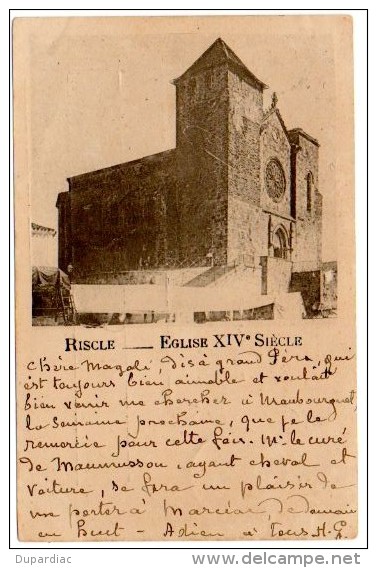 RISCLE — EGLISE XIVe SIÈCLE
Chère Magali, dis à grand Père, qui
est toujours bien aimable et voulait
bien venir me chercher à Maubourguet,
la semaine prochaine, que je le
remercie pour cette fois. Mr. le curé
de Maumusson, ayant cheval et
voiture, se fera un plaisir de
me porter à Marciac, de demain
en huit - Adieu à tous. H. G.
Dupardiac
www.delcampe.net